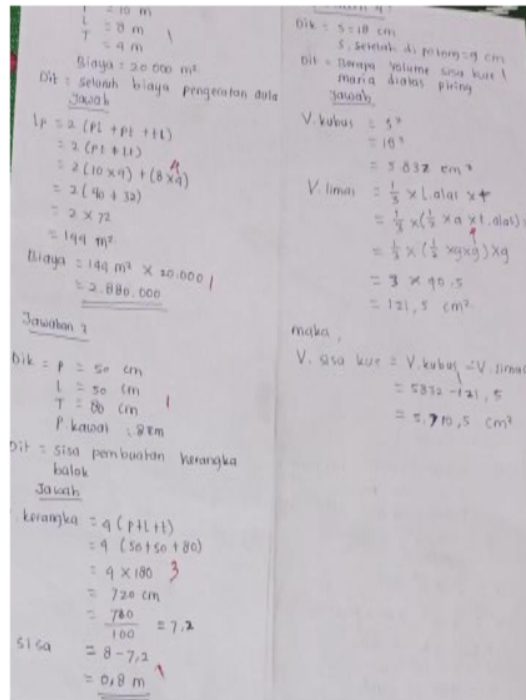 P = 10 m
l = 8 m
T = 4 m
Biaya = 20.000 m²
Dit = seluruh biaya pengecatan aula
Jawab
Lp = 2 (pl + pt + tl)
= 2 (pt + lt)
= 2 (10 x 4) + (8 x 4)
= 2 (40 + 32)
= 2 x 72
= 144 m²
Biaya = 144 m² x 20.000
= 2.880.000
Jawaban 3
Dik = P = 50 cm
l = 50 cm
T = 80 cm
P. kawat = 8 m
Dit = sisa pembuatan kerangka
balok
Jawab
kerangka = 4 (p+l+t)
= 4 (50+50+80)
= 4 x 180 3
= 720 cm
= 780/100 = 7,2
sisa = 8 - 7,2
= 0,8 m
Dik = s = 18 cm
s. setelah di potong = 9 cm
Dit = Berapa volume sisa kue
maria diatas piring
Jawab
V. kubus = s³
= 18³
= 5832 cm³
V. limas = 1/3 x L. alas x t
= 1/3 x (1/2 x a x t. alas)
= 1/3 x (1/2 x 9 x 9) x 9
= 3 x 40,5
= 121,5 cm³
maka,
V. sisa kue = V. kubus - V. limas
= 5832 - 121,5
= 5.710,5 cm³